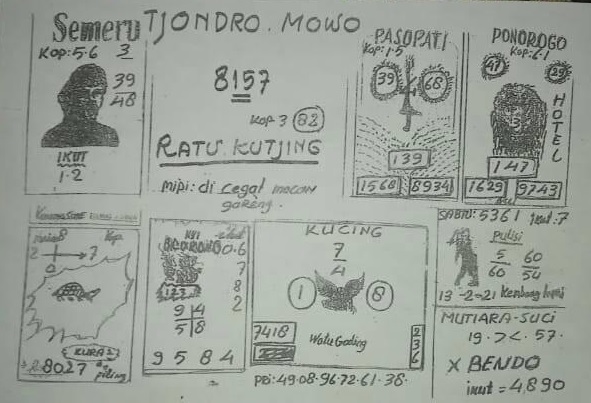 Semeru
Kop: 5·6 3
39
48
IKUT
1-2
TJONDRO. MOWO
8157
Kop 3 82
RATU. KUTJING
mipi: di cegat macan
goreng.
PASOPATI
Kop: 1·5
39 68
139
1568 8934
PONOROGO
Kop: 6·1
47 29
HOTEL
147
1629 9743
SABTU: 5361 ikut: 7
Pulisi
5 60
60 54
13 -2-21 Kembang bumi
MUTIARA-SUCI
19 · >< · 57.
X BENDO
ikut = 4,890
Kop
2 7
KURA2
8027
KYI
0.6
7
8
2
123
9 4
5 8
9 5 8 4
KUCING
7
4
1 8
7418
Watu Gading
236
PBI: 49·08·96·72·61·38·